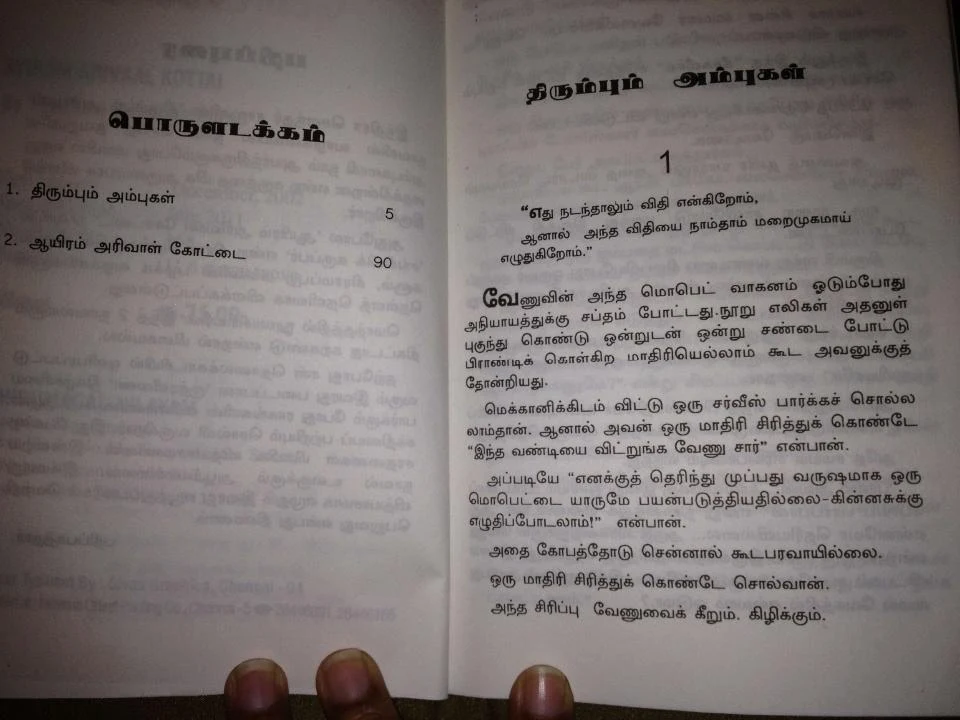 பொருளடக்கம்
1. திரும்பும் அம்புகள் 5
2. ஆயிரம் அரிவாள் கோட்டை 90
திரும்பும் அம்புகள்
1
“எது நடந்தாலும் விதி என்கிறோம்,
ஆனால் அந்த விதியை நாம்தாம் மறைமுகமாய்
எழுதுகிறோம்.”
வேணுவின் அந்த மொபெட் வாகனம் ஓடும்போது
அநியாயத்துக்கு சப்தம் போட்டது.நூறு எலிகள் அதனுள்
புகுந்து கொண்டு ஒன்றுடன் ஒன்று சண்டை போட்டு
பிராண்டிக் கொள்கிற மாதிரியெல்லாம் கூட அவனுக்குத்
தோன்றியது.
மெக்கானிக்கிடம் விட்டு ஒரு சர்வீஸ் பார்க்கச் சொல்ல
லாம்தான். ஆனால் அவன் ஒரு மாதிரி சிரித்துக் கொண்டே
“இந்த வண்டியை விட்றுங்க வேணு சார்” என்பான்.
அப்படியே “எனக்குத் தெரிந்து முப்பது வருஷமாக ஒரு
மொபெட்டை யாருமே பயன்படுத்தியதில்லை-கின்னசுக்கு
எழுதிப்போடலாம்!” என்பான்.
அதை கோபத்தோடு சென்னால் கூடபரவாயில்லை.
ஒரு மாதிரி சிரித்துக் கொண்டே சொல்வான்.
அந்த சிரிப்பு வேணுவைக் கீறும். கிழிக்கும்.